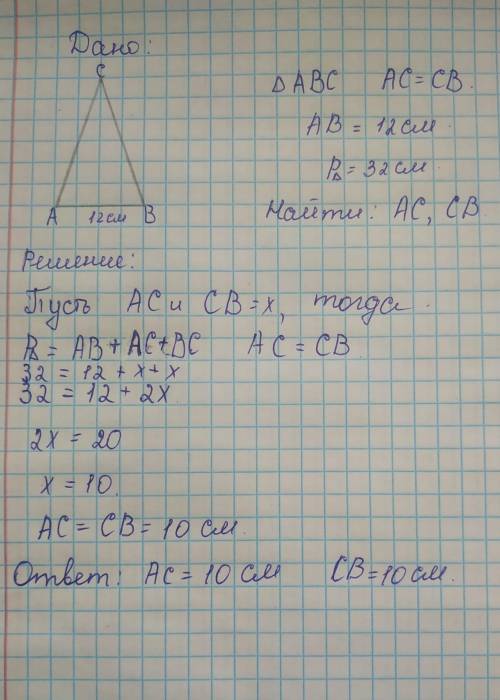 Дано:
C
A 12см B
△ABC AC = CB.
AB = 12см.
P△ = 32см.
Найти: AC, CB
Решение:
Пусть AC и CB = x, тогда
P△ = AB + AC + BC AC = CB
32 = 12 + x + x
32 = 12 + 2x
2x = 20
x = 10.
AC = CB = 10 см.
Ответ: AC = 10 см CB = 10 см.